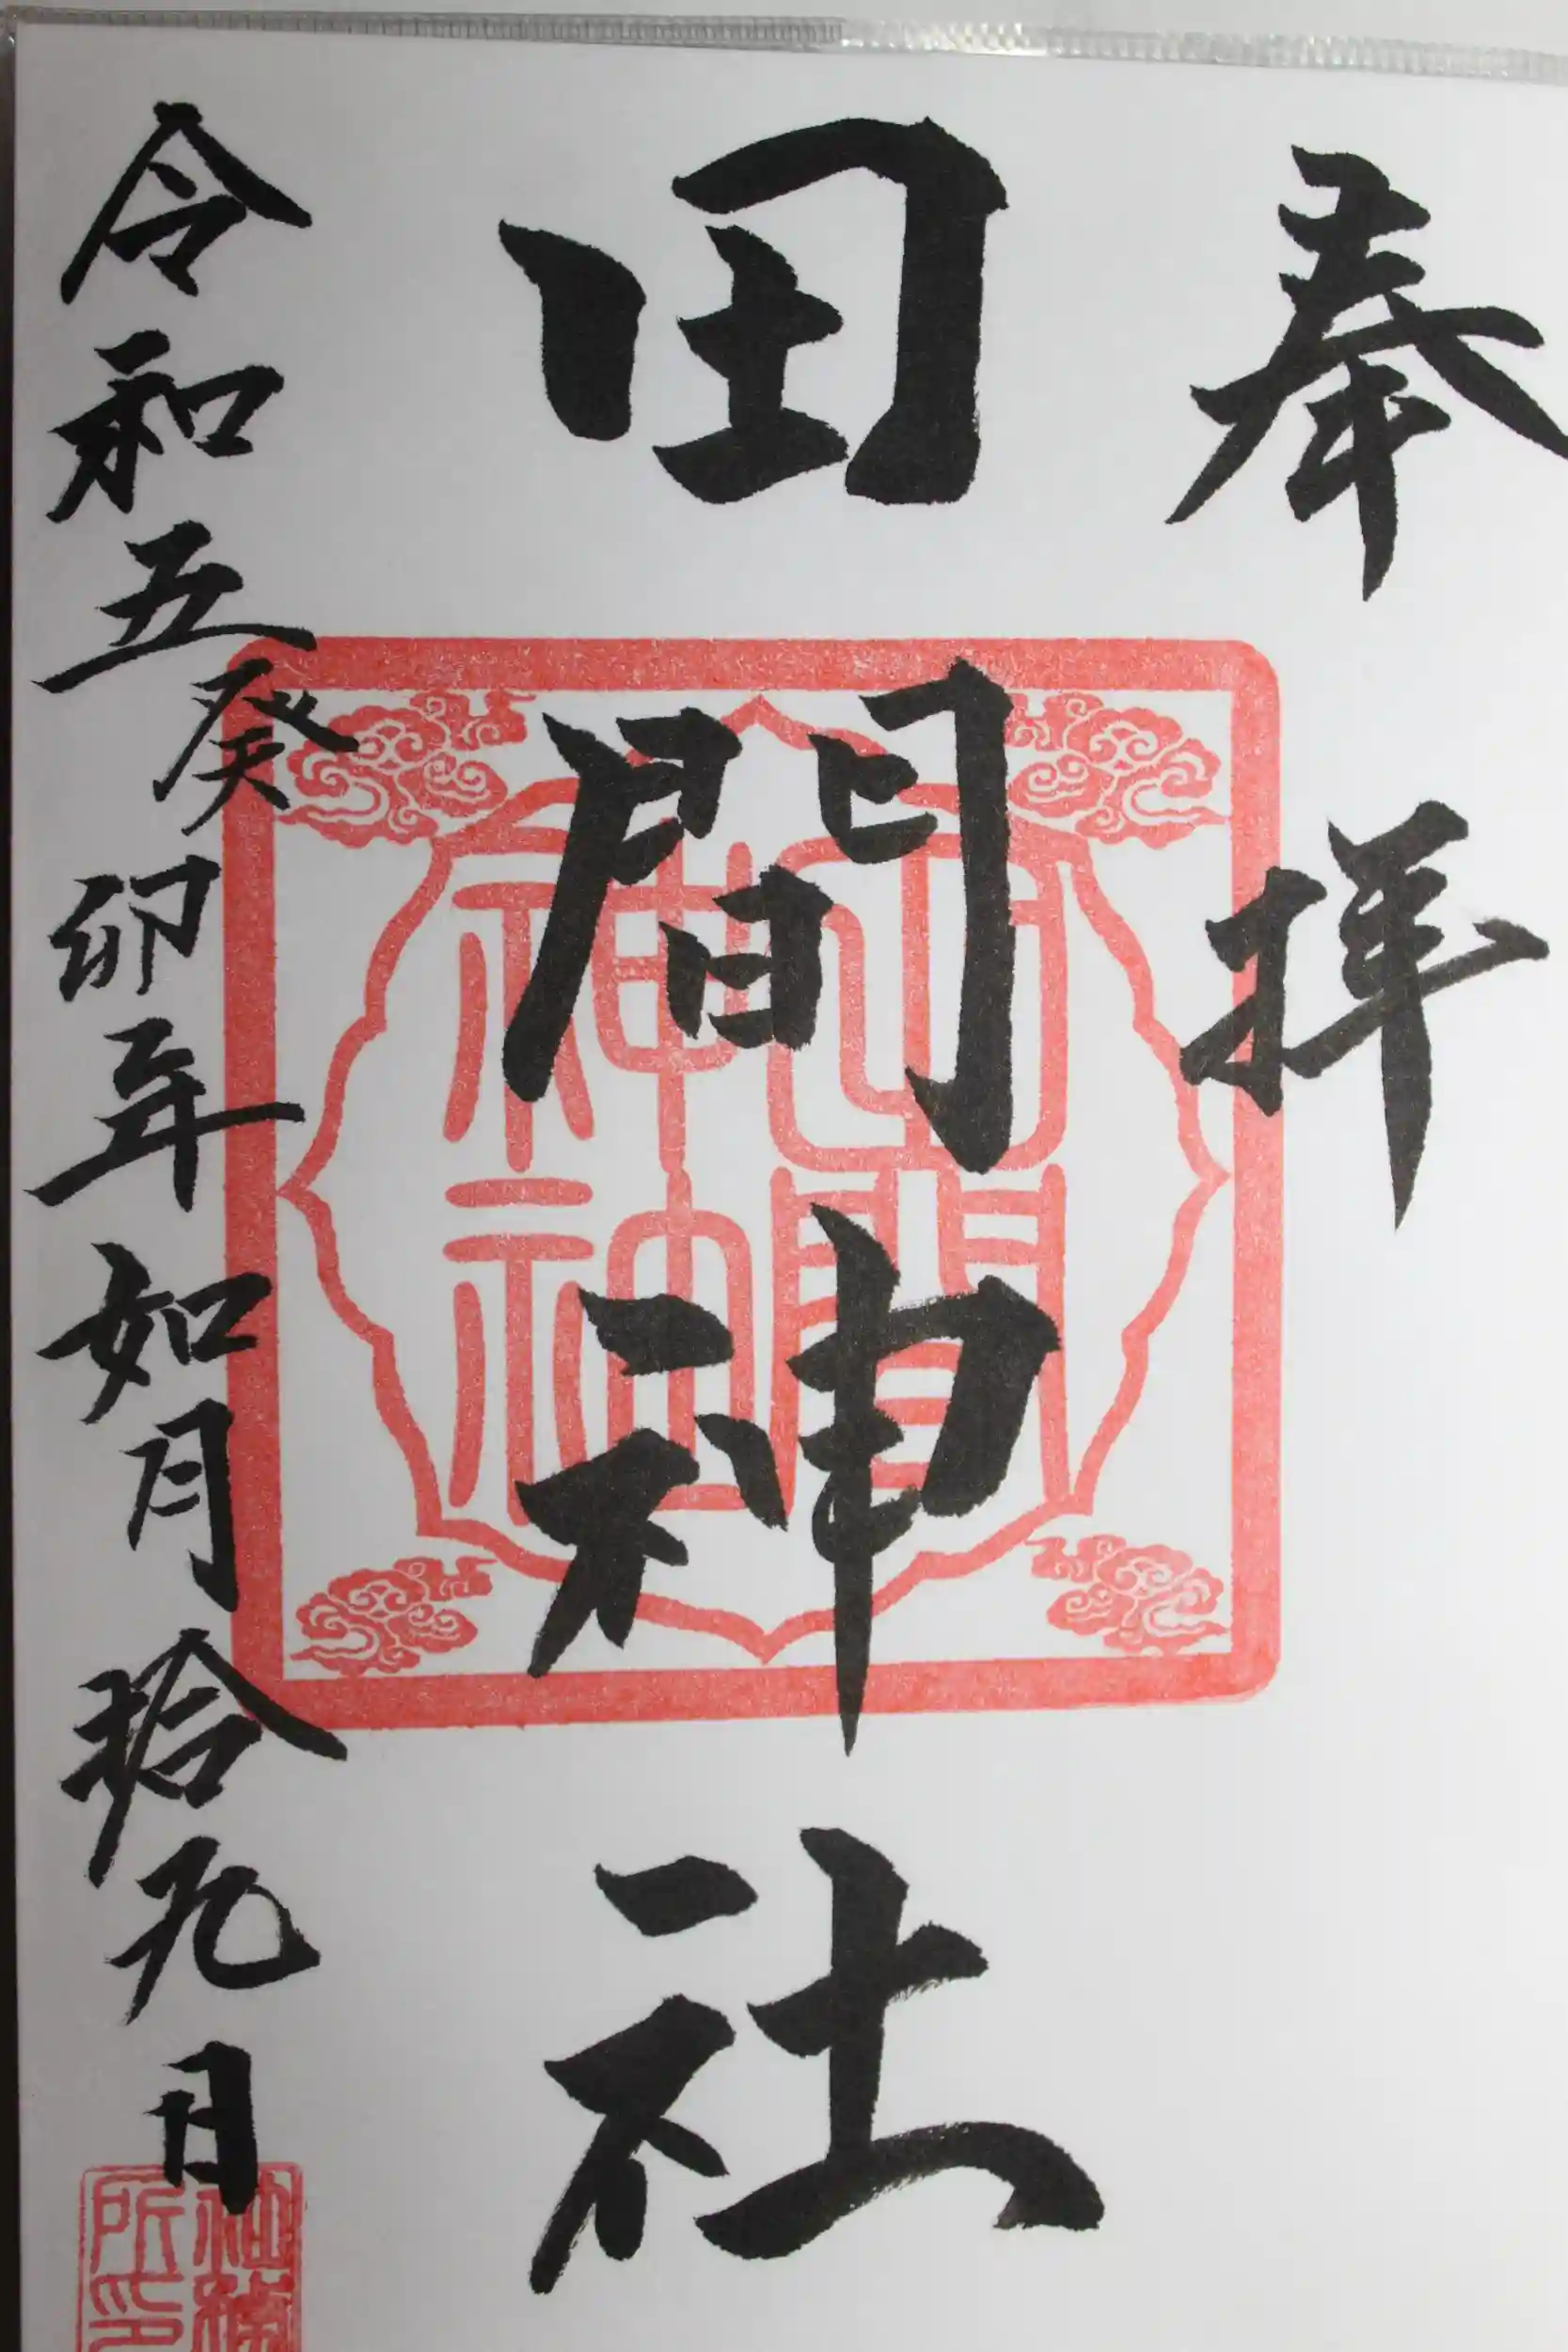 奉拝
田間神社
令和五癸卯年如月拾九日
田間神社